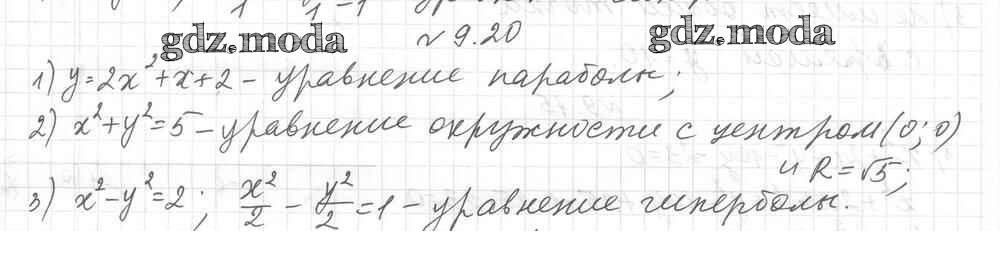 gdz.moda № 9.20 gdz.moda
1) y=2x²+x+2 – уравнение параболы;
2) x²+y²=5 – уравнение окружности с центром (0; 0)
и R=√5;
3) x²-y²=2; x²/2 - y²/2 = 1 – уравнение гиперболы.